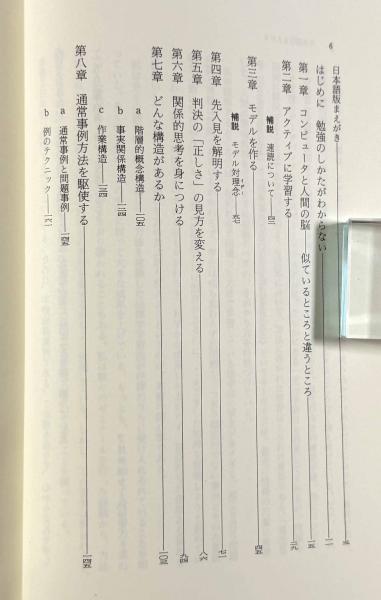 6
日本語版まえがき――3
はじめに 勉強のしかたがわからない――一一
第一章 コンピュータと人間の脳――似ているところと違うところ――一五
第二章 アクティブに学習する――二九
補説 速読について――四三
第三章 モデルを作る――四五
補説 モデル対理念――六七
第四章 先入見を解明する――七一
第五章 判決の「正しさ」の見方を変える――八六
第六章 関係的思考を身につける――九四
第七章 どんな構造があるか――一〇三
a 階層的概念構造――一〇五
b 事実関係構造――一二四
c 作業構造――一三四
第八章 通常事例方法を駆使する――一四五
a 通常事例と問題事例――一四五
b 例のテクニック――一六一